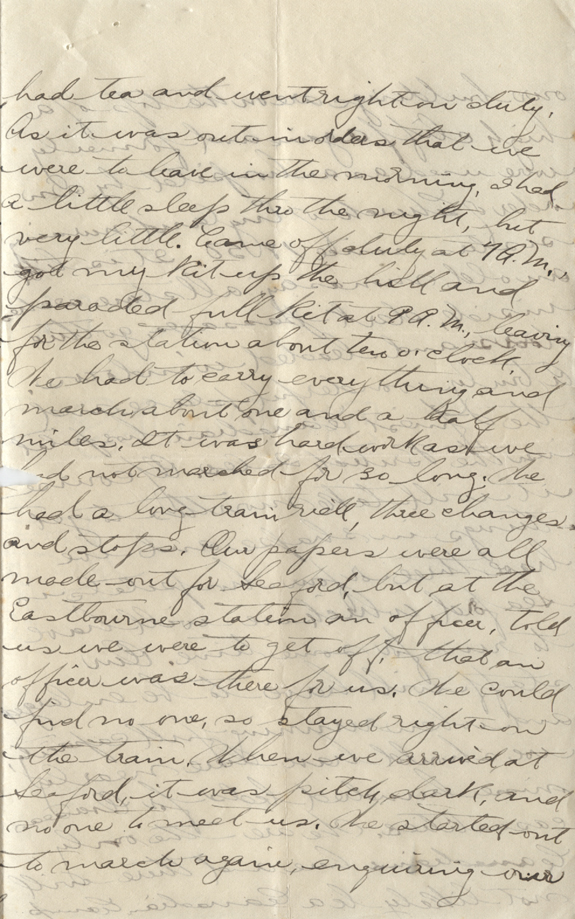 had tea and went right on duty.
As it was out in orders that we
were to leave in the morning, I had
a little sleep thro the night, but
very little. Came off duty at 7 A.M.,
got my kit up the hill and
paraded full kit at 9 A.M., leaving
for the station about ten o'clock.
We had to carry everything and
march about one and a half
miles. It was hard work as we
had not marched for so long. We
had a long train ride, three changes
and stops. Our papers were all
made out for Seaford, but at the
Eastbourne station an officer, told
us we were to get off, that an
officer was there for us. We could
find no one, so stayed right on
the train. When we arrived at
Seaford, it was pitch dark, and
no one to meet us. We started out
to march again, enquiring our